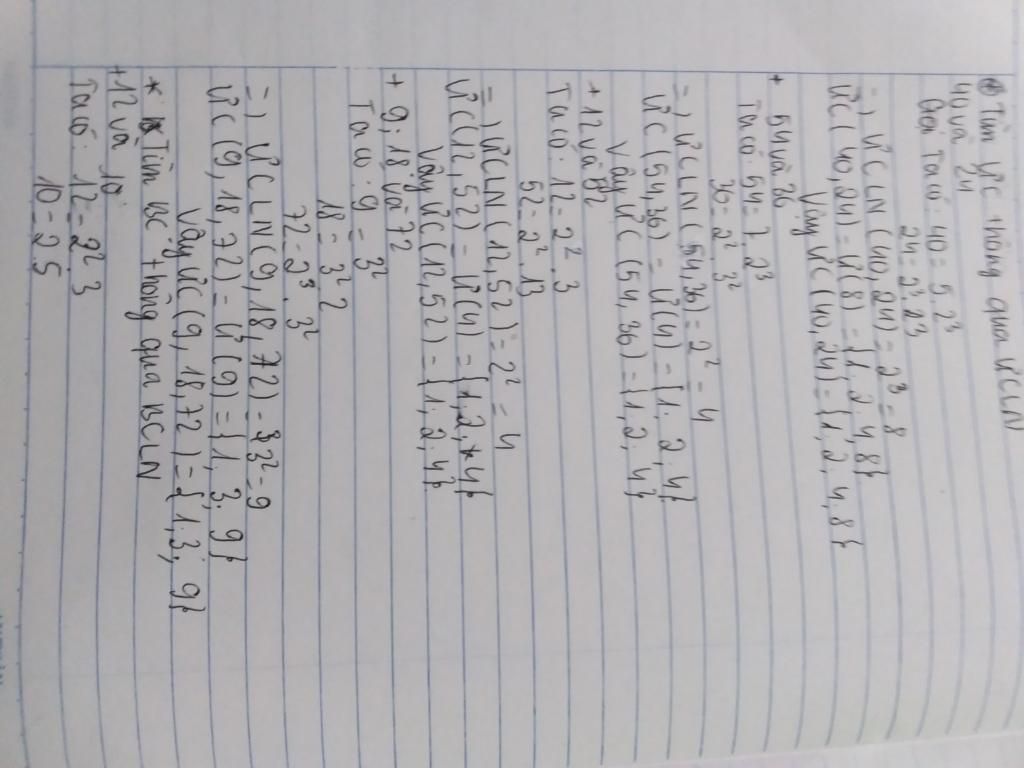 * Tìm ƯC thông qua ƯCLN
40 và 24
Ta có: 40 = 5.2³
24 = 2³.3
=) ƯCLN(40,24) = 2³ = 8
ƯC(40,24) = Ư(8) = {1, 2, 4, 8}
Vậy ƯC(40,24) = {1, 2, 4, 8}
+ 54 và 36
Ta có: 54 = 7.2³
36 = 2².3²
=) ƯCLN(54,36) = 2² = 4
ƯC(54,36) = Ư(4) = {1, 2, 4}
Vậy ƯC(54,36) = {1, 2, 4}
+ 12 và 52
Ta có: 12 = 2².3
52 = 2².13
=) ƯCLN(12,52) = 2² = 4
ƯC(12,52) = Ư(4) = {1, 2, 4}
Vậy ƯC(12,52) = {1, 2, 4}
+ 9; 18 và 72
Ta có: 9 = 3²
18 = 3².2
72 = 2³.3²
=) ƯCLN(9,18,72) = 3² = 9
ƯC(9,18,72) = Ư(9) = {1; 3; 9}
Vậy ƯC(9,18,72) = {1,3; 9}
* Tìm BC thông qua BCLN
+ 12 và 10
Ta có: 12 = 2².3
10 = 2.5